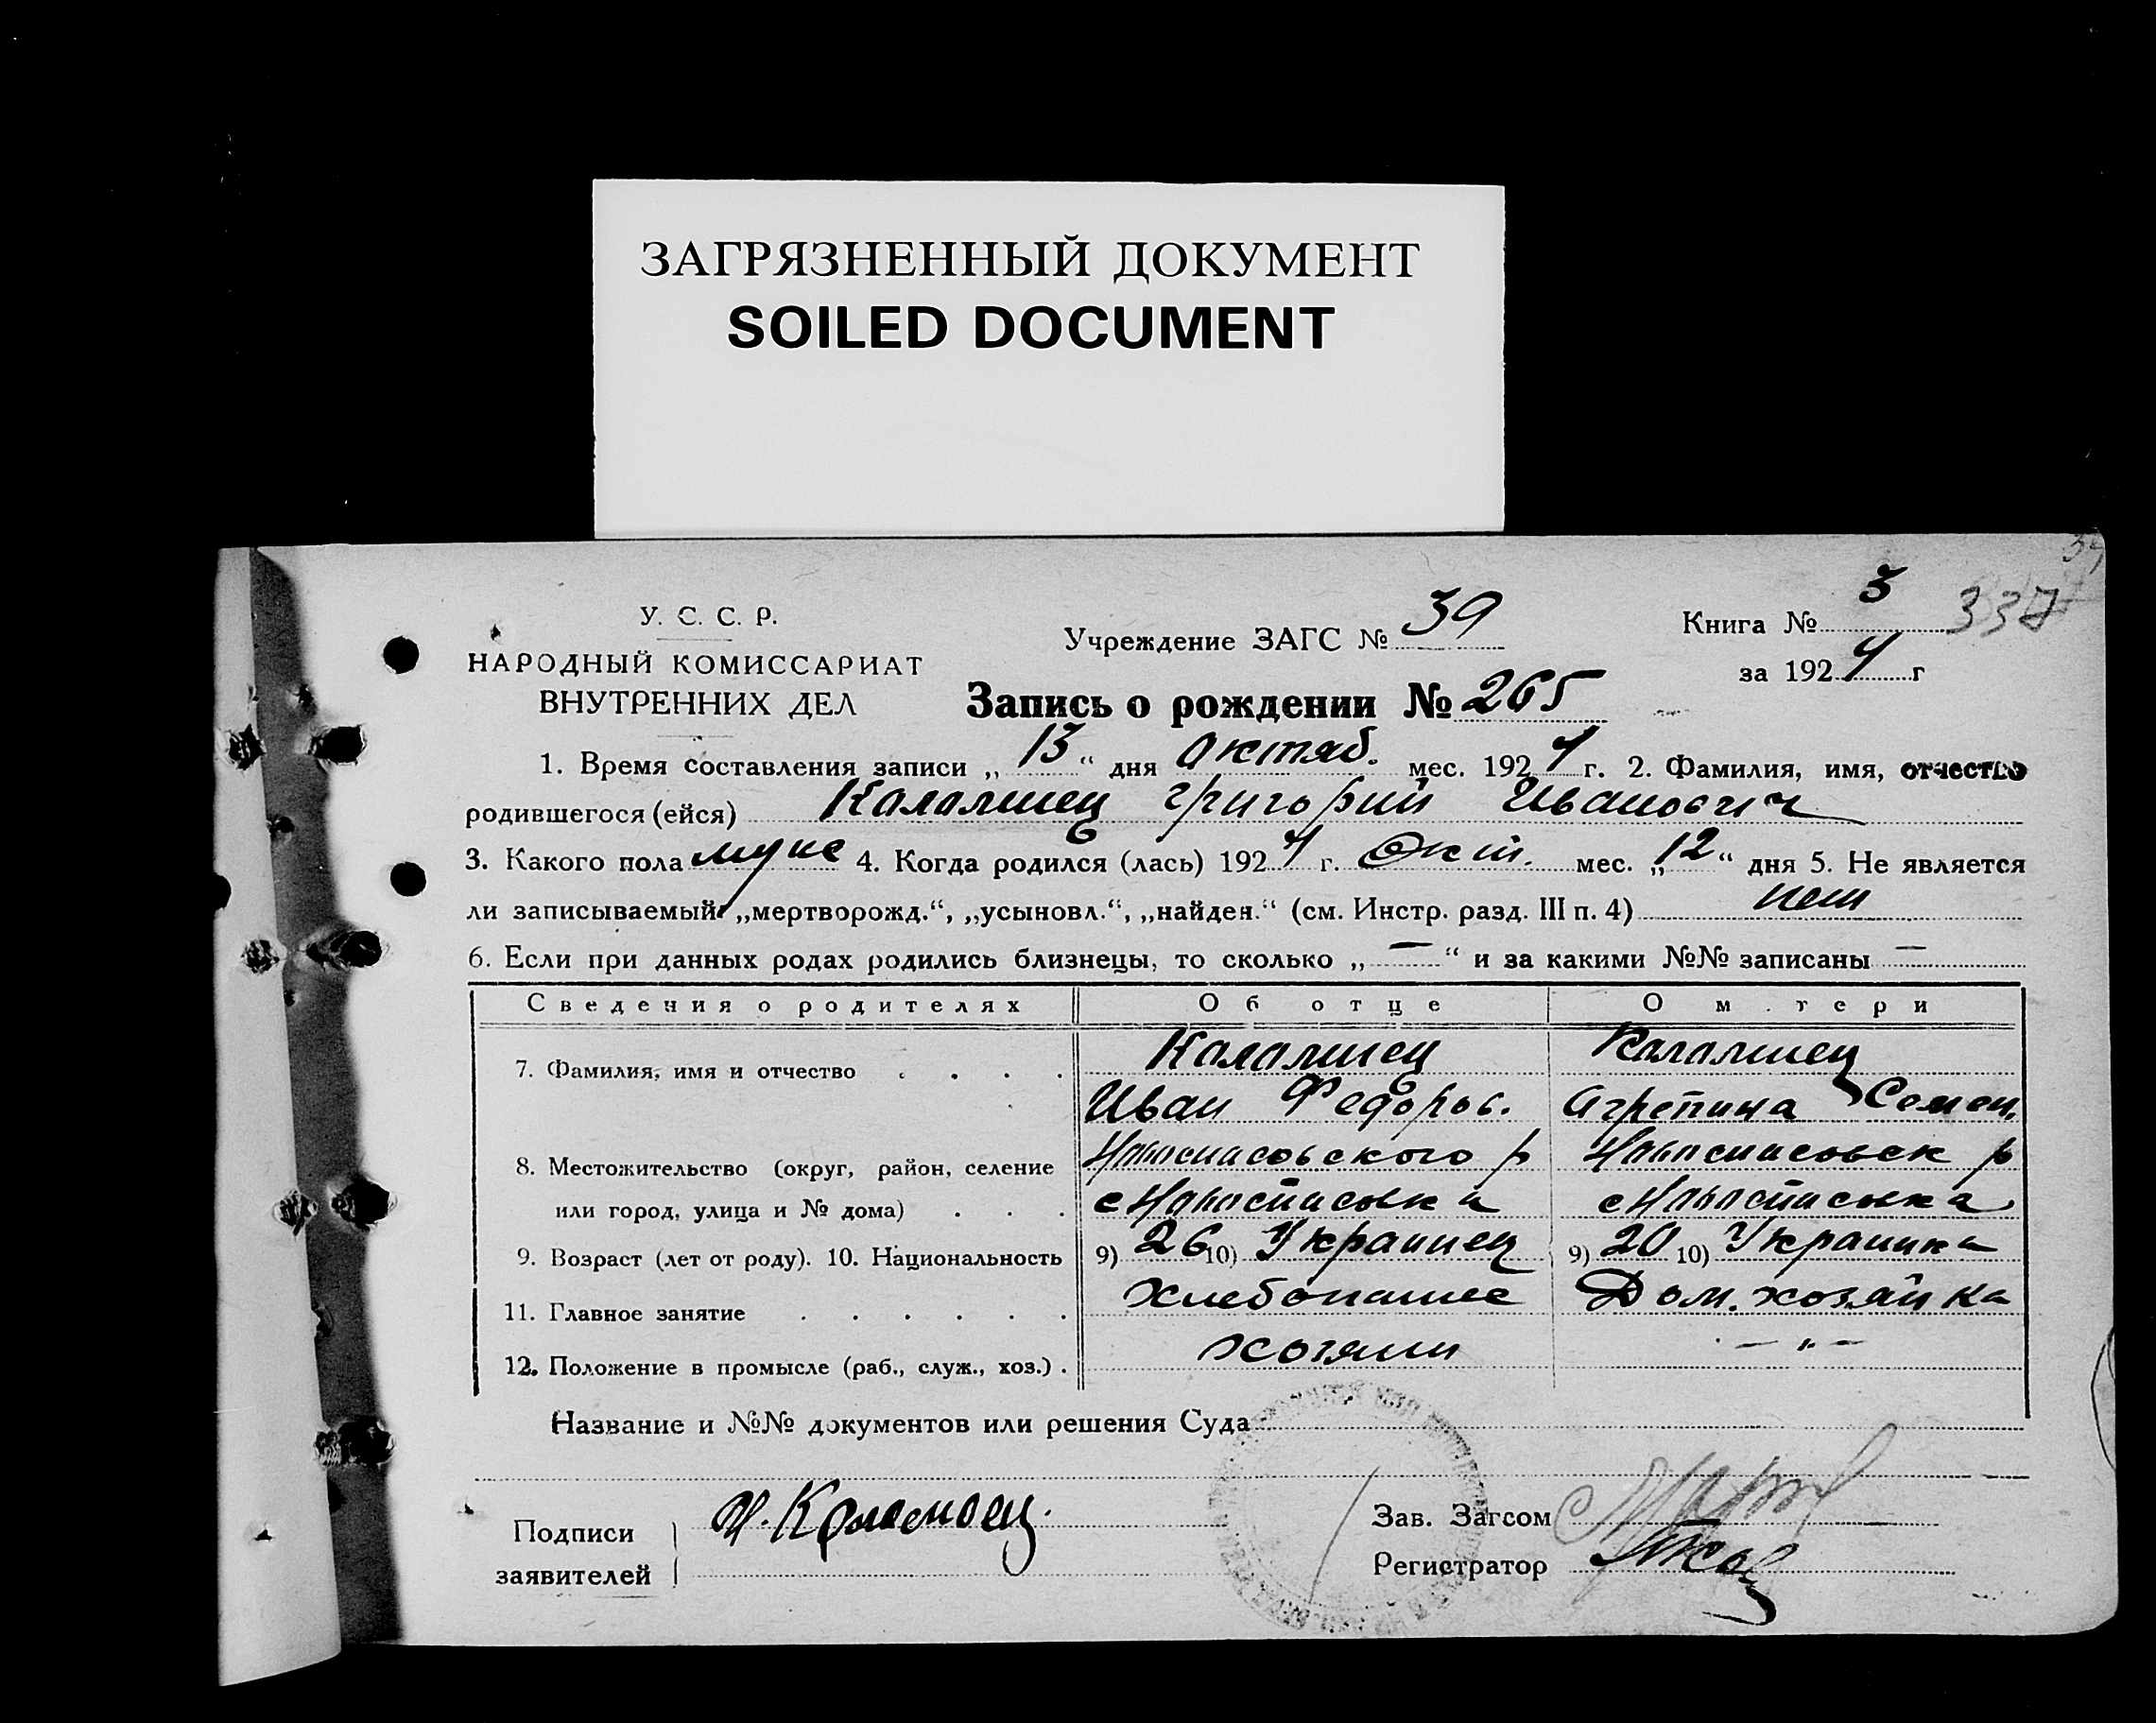 ЗАГРЯЗНЕННЫЙ ДОКУМЕНТ
SOILED DOCUMENT
У. С. С. Р.
НАРОДНЫЙ КОМИССАРИАТ
ВНУТРЕННИХ ДЕЛ
Учреждение ЗАГС № 39
Книга № 3 337
за 1924 г
Запись о рождении № 265
1. Время составления записи „13“ дня Октяб. мес. 1924 г. 2. Фамилия, имя, отчество
родившегося (ейся) Каламиец Григорий Иванович
3. Какого пола муж 4. Когда родился (лась) 1924 г. Окт. мес. „12“ дня 5. Не является
ли записываемый „мертворожд.“, „усыновл.“, „найден.“ (см. Инстр. разд. III п. 4) нет
6. Если при данных родах родились близнецы, то сколько „—“ и за какими №№ записаны —
Сведения о родителях Об отце О м тери
7. Фамилия, имя и отчество . . . . Каламиец Каламиец
Иван Федоров. Агрепина Семен.
8. Местожительство (округ, район, селение Новоспасовского р Новоспасовск р
или город, улица и № дома) . . . с Новоспасовка с Новоспасовка
9. Возраст (лет от роду). 10. Национальность 9) 26 10) Украинец 9) 20 10) Украинка
11. Главное занятие . . . . . . Хлебопашес Дом. хозяйка
12. Положение в промысле (раб., служ., хоз.) . хозяин — „ —
Название и №№ документов или решения Суда
Подписи
заявителей
Зав. Загсом
Регистратор